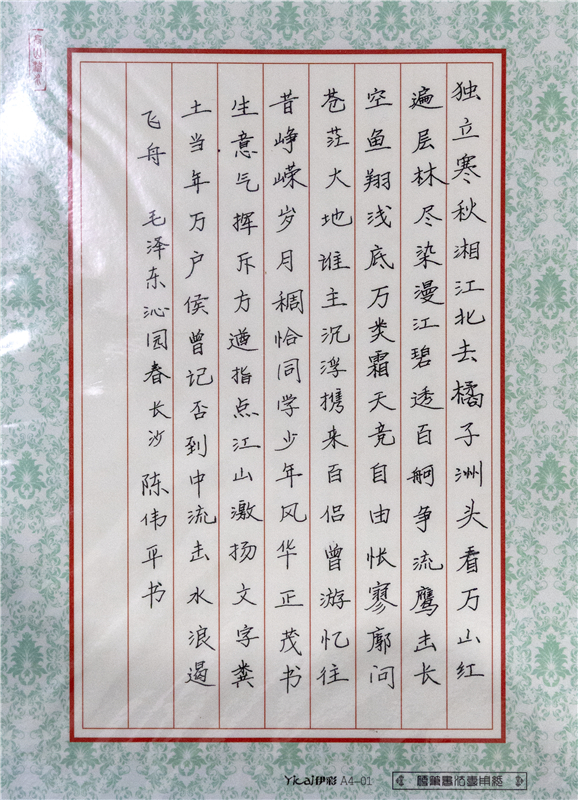 独立寒秋湘江北去橘子洲头看万山红
遍层林尽染漫江碧透百舸争流鹰击长
空鱼翔浅底万类霜天竞自由怅寥廓问
苍茫大地谁主沉浮携来百侣曾游忆往
昔峥嵘岁月稠恰同学少年风华正茂书
生意气挥斥方遒指点江山激扬文字粪
土当年万户侯曾记否到中流击水浪遏
飞舟 毛泽东沁园春长沙 陈伟平书
Yicai伊彩 A4-01